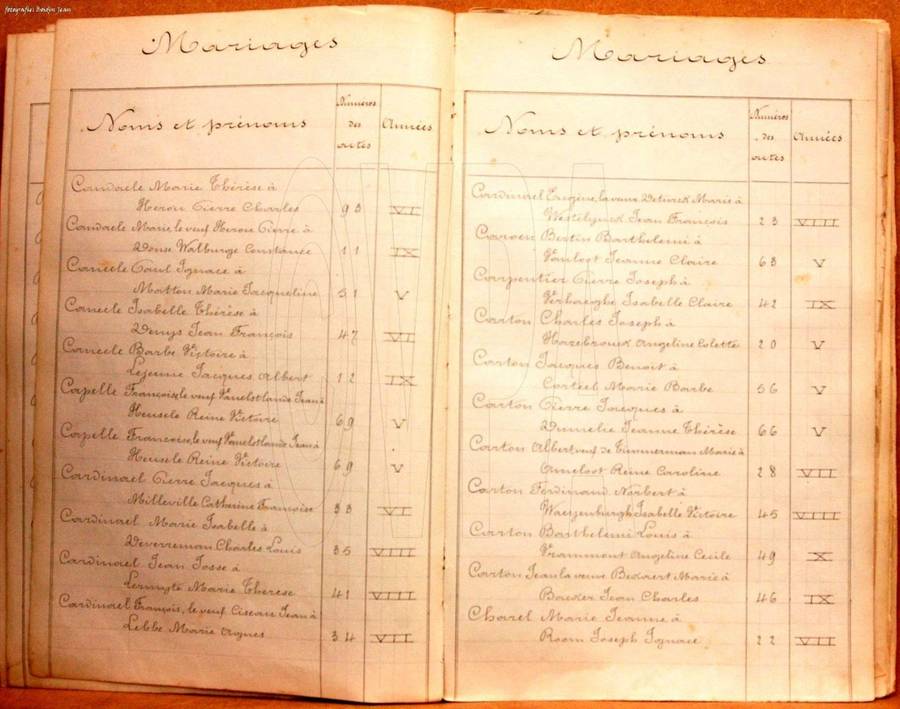 fotografie: Boidjn Jean
Mariages
Noms et prénoms
Numéros
des
actes
Années
Candaele Marie Thérèse à
Heron Pierre Charles 93 VI
Candaele Marie, le veuf Heron Pierre à
Donse Walburge Constance 11 IX
Caneele Paul Ignace à
Matton Marie Jacqueline 51 V
Caneele Isabelle Thérèse à
Denys Jean François 47 VI
Caneele Barbe Victoire à
Lejeune Jacques Albert 12 IX
Capelle Françoise, le veuf Vanelstlande Jean à
Heusele Reine Victoire 69 V
Capelle Francoise, le veuf Vanelstlande Jean à
Heusele Reine Victoire 69 V
Cardinael Pierre Jacques à
Milleville Catherine Françoise 33 VI
Cardinael Marie Isabelle à
Deverreman Charles Louis 35 VIII
Cardinael Jean Josse à
Marie Therese 41 VIII
Cardinael François, le veuf Ciseau Jean à
Lebbe Marie Agnes 34 VII
Mariages
Noms et prénoms
Numéros
des
actes
Années
Cardinael Eugène, la veuve Deturck Marie à
Westelynck Jean François 23 VIII
Caroen Bertin Barthelemi à
Vanloot Jeanne Claire 63 V
Carpentier Pierre Joseph à
Verhaeghe Isabelle Claire 42 IX
Carton Charles Joseph à
Hazebrouck Angeline Colette 20 V
Carton Jacques Benoit à
Corteel Marie Barbe 56 V
Carton Pierre Jacques à
Dumelie Jeanne Thérèse 66 V
Carton Albert veuf de Timmerman Marie à
Ameloot Reine Caroline 28 VII
Carton Ferdinand Norbert à
Isabelle Victoire 45 VIII
Carton Barthelemi Louis à
Vrammout Angeline Cecile 49 X
Carton Jean la veuve Bekaert Marie à
Baeker Jean Charles 46 IX
Charel Marie Jeanne à
Room Joseph Ignace 22 VII